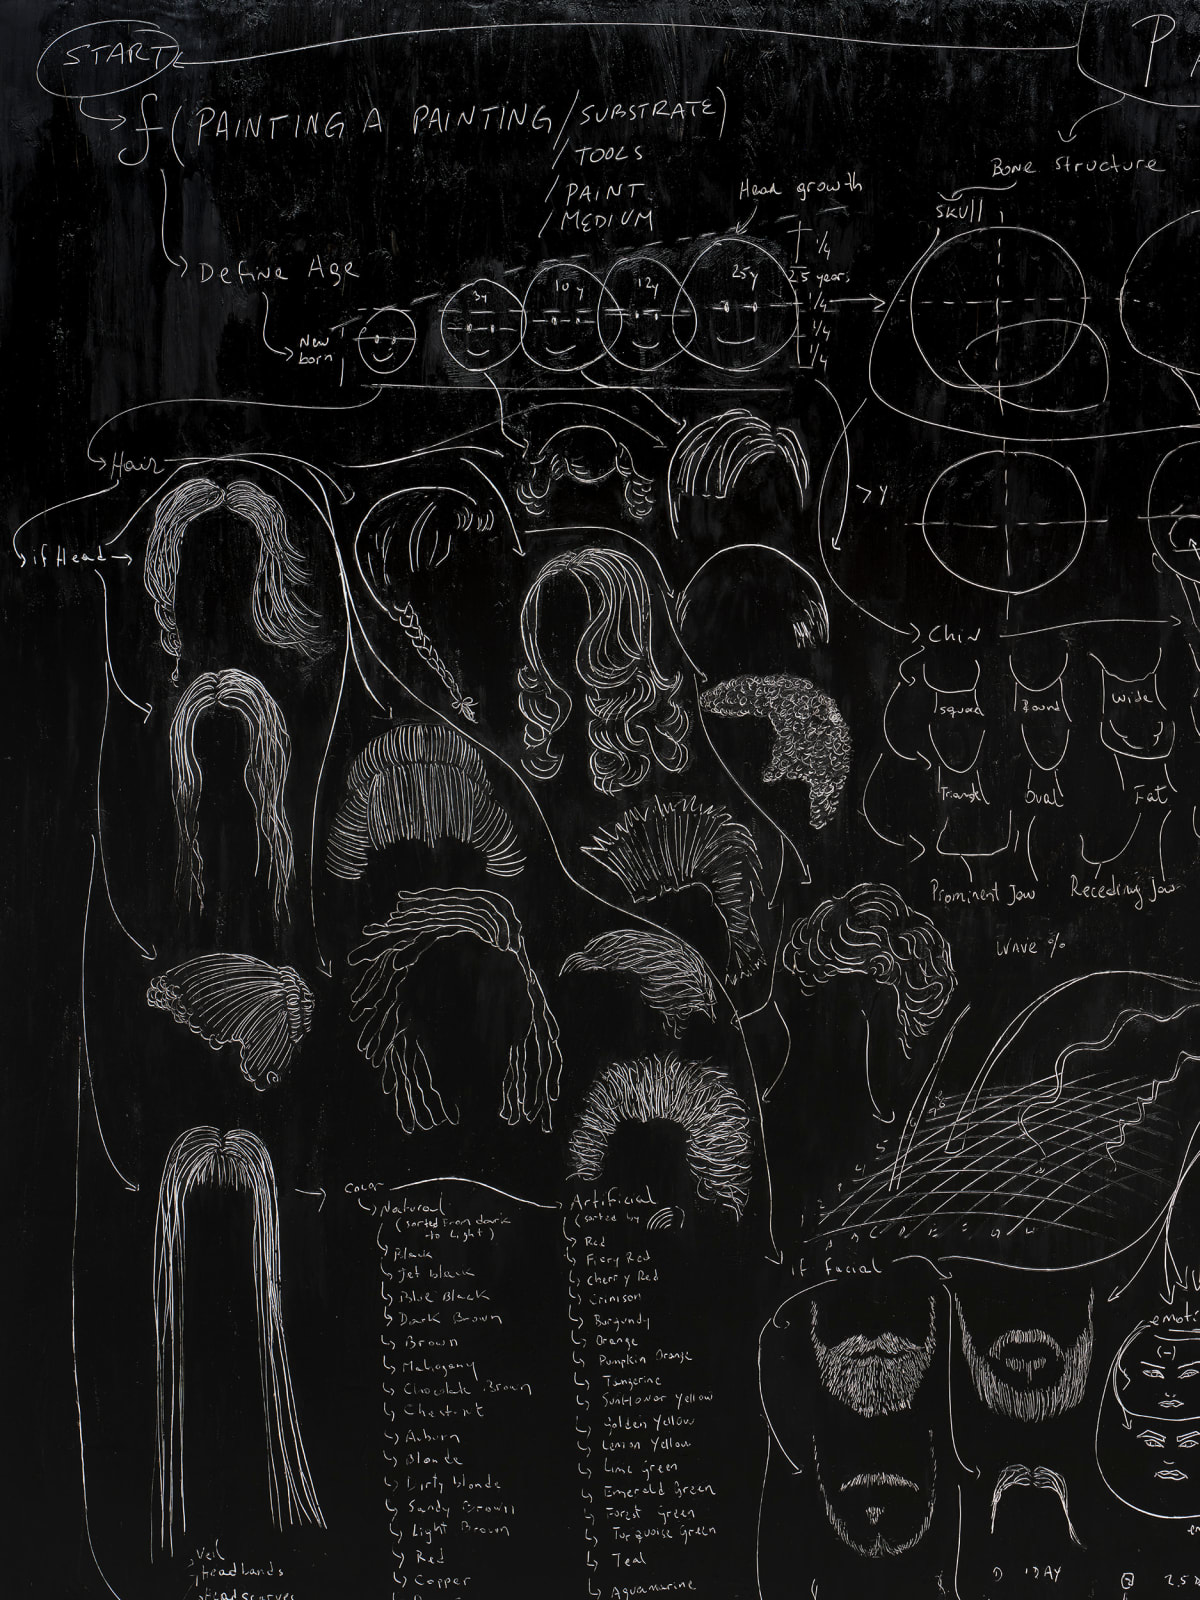 START
P
f(PAINTING A PAINTING/SUBSTRATE)
/TOOLS
/PAINT
/MEDIUM
Bone Structure
Head growth
SKULL
Define Age
New born
3y
10y
12y
25y
1/4
25 years
1/4
1/4
1/4
Hair
if Head
Y
Chin
Round
Wide
Oval
Fat
Prominent Jaw
Receding Jaw
WAVE %
Color
Natural
(sorted from dark
to light)
Black
Jet black
Blue Black
Dark Brown
Brown
Mahogany
Chocolate Brown
Chestnut
Auburn
Blonde
Dirty blonde
Sandy Brown
Light Brown
Red
Copper
Artificial
(sorted by
Red
Fiery Red
Cherry Red
Crimson
Burgundy
Orange
Pumpkin Orange
Tangerine
Sunflower Yellow
Golden Yellow
Lemon Yellow
Lime green
Emerald Green
Forest green
Turquoise Green
Teal
Aquamarine
if facial
emoti
(-)
1 DAY
2.5
Veil
Headbands
Headscarves